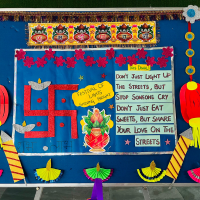 FESTIVAL OF
LIGHTS
THIS DIWALI
DON'T JUST LIGHT UP
THE STREETS, BUT
STOP SOMEONE CRY
DON'T JUST EAT
SWEETS, BUT SHARE
YOUR LOVE ON THE
STREETS